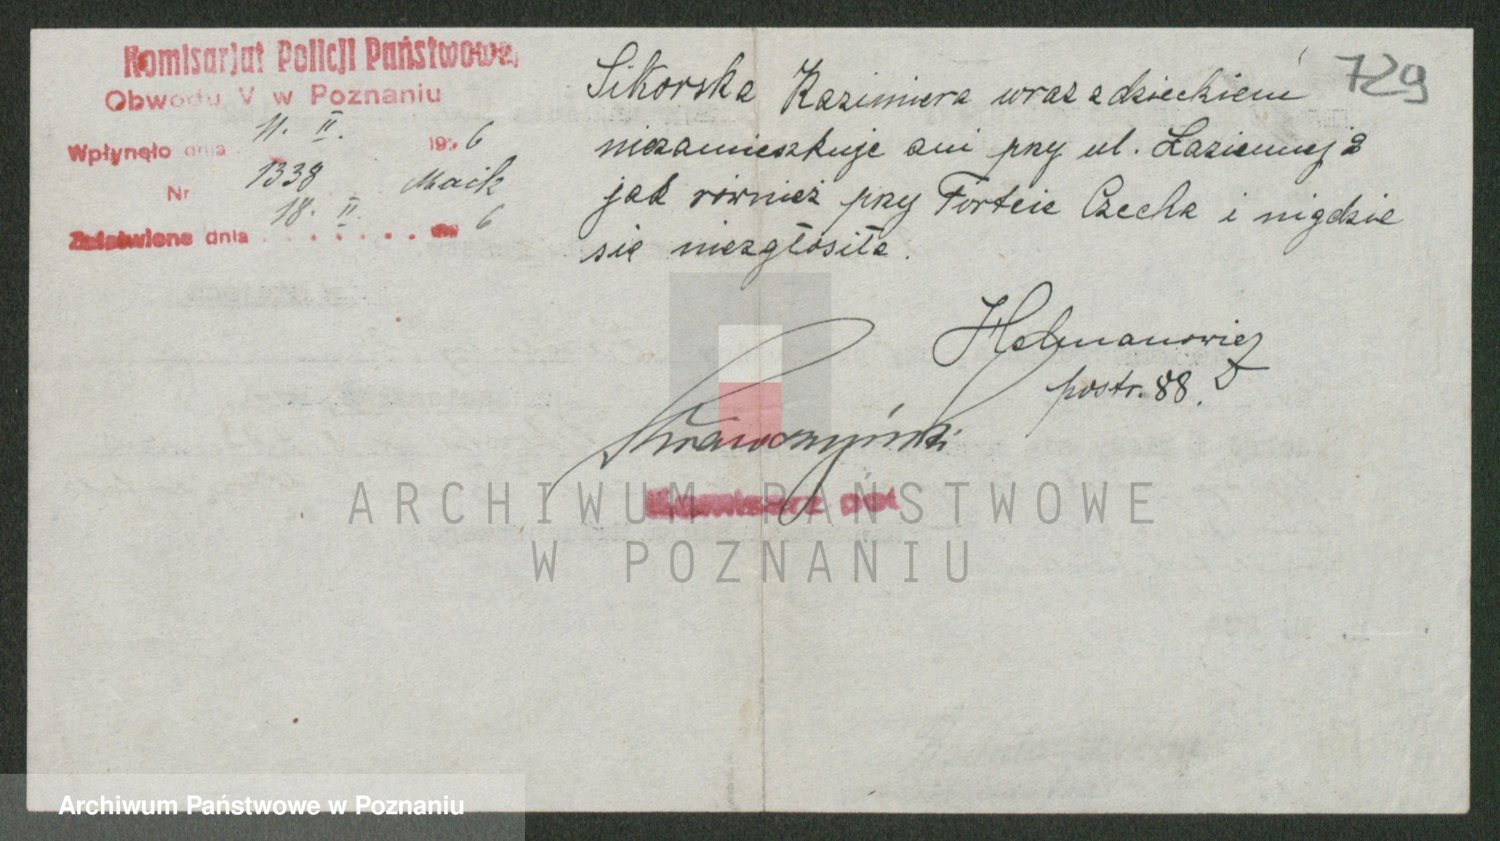 Komisarjat Policji Państwowej
Obwodu V w Poznaniu
Wpłynęło dnia 11. II. 1936
Nr 1338
Załatwione dnia 18. II. 6
729
Sikorska Kazimiera wraz z dzieckiem
niezamieszkuje ani przy ul. Łaziennej 2
jak również przy Forteie Czecha i nigdzie
się niezgłosiła.
Helmanowicz
postr. 88.
Krawczyński
ARCHIWUM PAŃSTWOWE
W POZNANIU
Archiwum Państwowe w Poznaniu